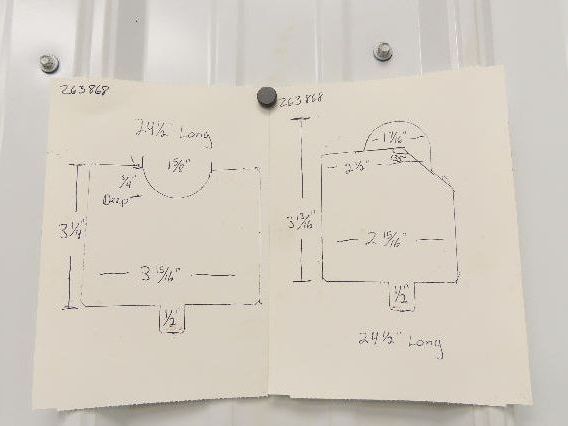 263868
24 1/2" Long
1 5/8"
3/4"
Deep
3 1/4"
3 15/16"
1/2"
263868
2 1/2"
3 13/16"
2 15/16"
1/2"
24 1/2" Long